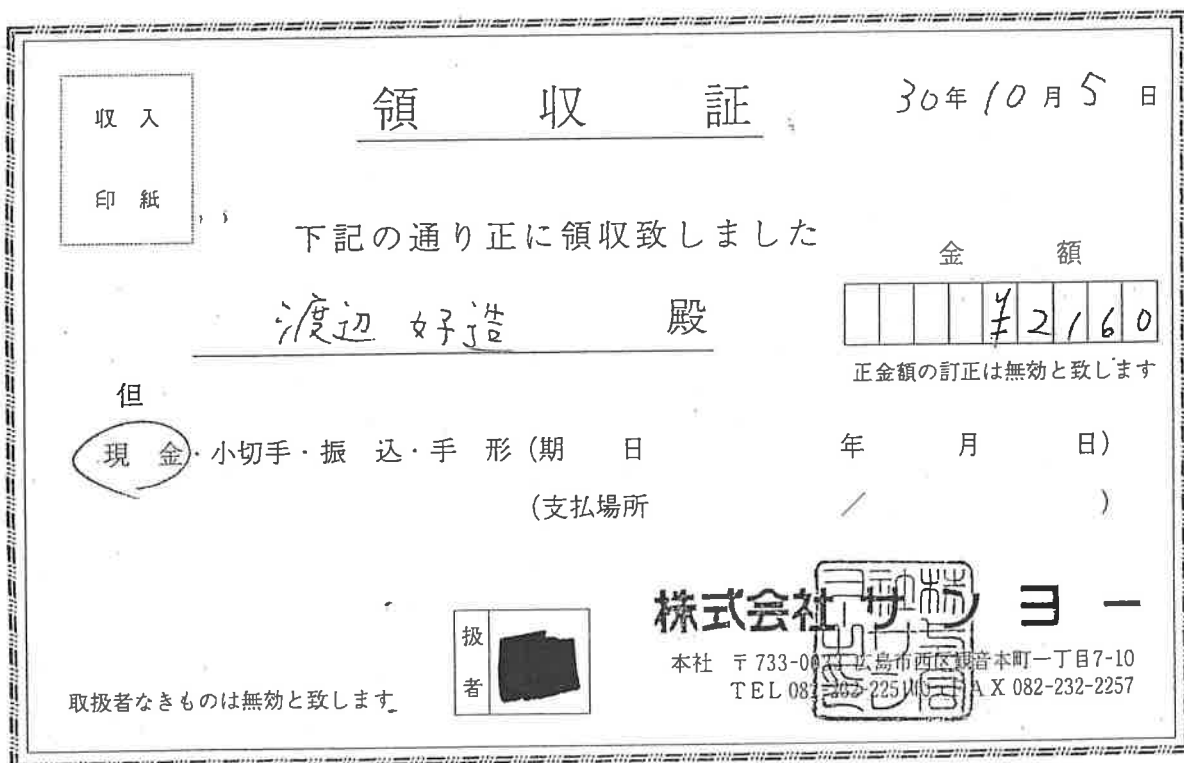 収入
印紙
領収証
30年10月5日
下記の通り正に領収致しました
渡辺 好造 殿
金額
¥2160
正金額の訂正は無効と致します
但
現金・小切手・振込・手形(期日 年 月 日)
(支払場所 / )
株式会社サンヨー
扱者
本社 〒733-00 広島市西区観音本町一丁目7-10
TEL 082-232-2251 FAX 082-232-2257
取扱者なきものは無効と致します